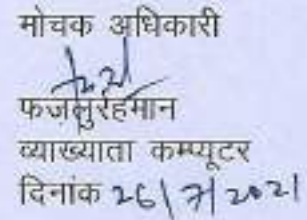 मोचक अधिकारी
फजलुर्रहमान
व्याख्याता कम्प्यूटर
दिनांक 26/7/2021